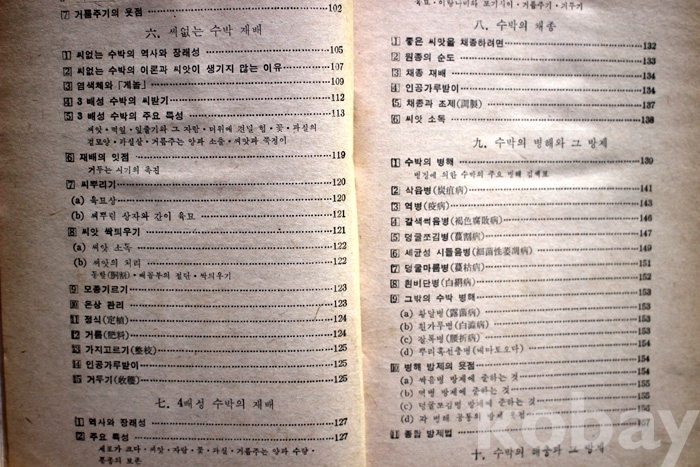 7 거름주기의 욧점 102
六. 씨없는 수박 재배
1 씨없는 수박의 역사와 장래성 105
2 씨없는 수박의 이론과 씨앗이 생기지 않는 이유 107
3 염색체와 「게놈」 109
4 3배성 수박의 씨받기 112
5 3배성 수박의 주요 특성 113
씨앗·떡잎·잎줄기와 그 자람·더위에 견딜 힘·꽃·과실의
겉모양·과실살·거름주는 양과 소출·씨앗과 쭉정이
6 재배의 잇점 119
거두는 시기의 촉진
7 씨뿌리기 120
(a) 육묘상 120
(b) 씨뿌린 상자와 같이 육묘 121
8 씨앗 싹틔우기 121
(a) 씨앗 소독 122
(b) 씨앗의 처리 122
싹틔우기
9 모종기르기 123
10 온상 관리 123
11 정식(定植) 124
12 거름(肥料) 124
13 가지고르기(整枝) 125
14 인공가루받이 125
15 거두기(收穫) 125
七. 4배성 수박의 재배
1 역사와 장래성 127
2 주요 특성 127
세포가 크다·씨앗·자람·꽃·과실·거름주는 양과 수량·
품종의 보존
거름주기·거두기
八. 수박의 채종
1 좋은 씨앗을 채종하려면 132
2 원종의 순도 133
3 채종 재배 134
4 인공가루받이 134
5 채종과 조제(調製) 137
6 씨앗 소독 138
九. 수박의 병해와 그 방제
1 수박의 병해 139
병징에 의한 수박의 주요 병해 검색표
2 삭음병(炭疽病) 141
3 역병(疫病) 143
4 갈색썩음병(褐色腐敗病) 146
5 덩굴쪼김병(蔓割病) 147
6 세균성 시들음병(細菌性萎凋病) 149
7 덩굴마름병(蔓枯病) 151
8 흰비단병(白絹病) 152
9 그밖의 수박 병해 153
(a) 황달병(露菌病) 153
(b) 흰가루병(白澁病) 153
(c) 잘록병(腰折病) 153
(d) 뿌리혹선충병(네마토오다) 154
10 병해 방제의 욧점 154
(a) 싹음병 방제에 준하는 것 154
(b) 역병 방제에 준하는 것 155
(c) 덩굴쪼김병 방제에 준하는 것
(d) 각 병해 공통의 방제 욧점
11 종합 방제법
十. 수박의 해충과 그 방제
kobay